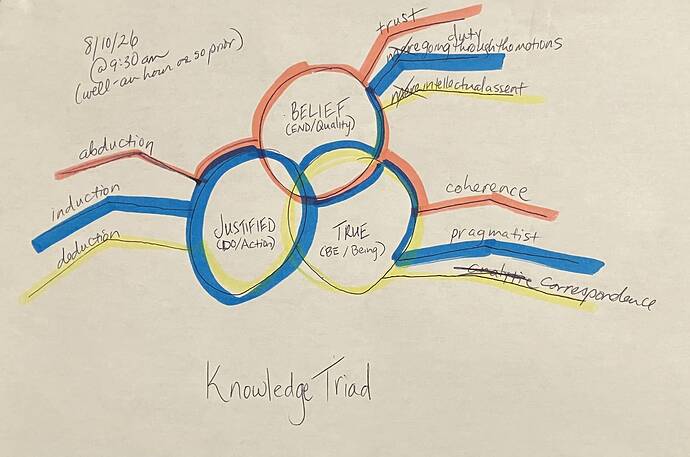 8/10/26
(@9:30 am
(well-an hour or so prior)
trust
duty
more going through the motions
more intellectual assent
BELIEF
(END/Quality)
abduction
induction
deduction
JUSTIFIED
(DO/Action)
TRUE
(BE / Being)
coherence
pragmatist
analytic correspondence
Knowledge Triad